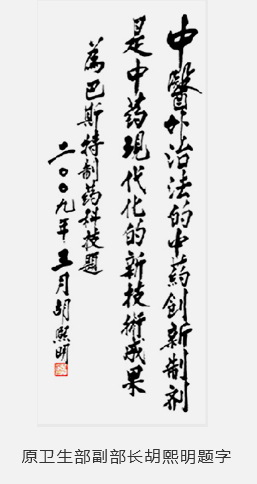 中醫外治法的中药創新制剂
是中药現代化的新技術成果
為巴斯特制药科技题
二〇〇九年三月胡熙明
原卫生部副部长胡熙明题字